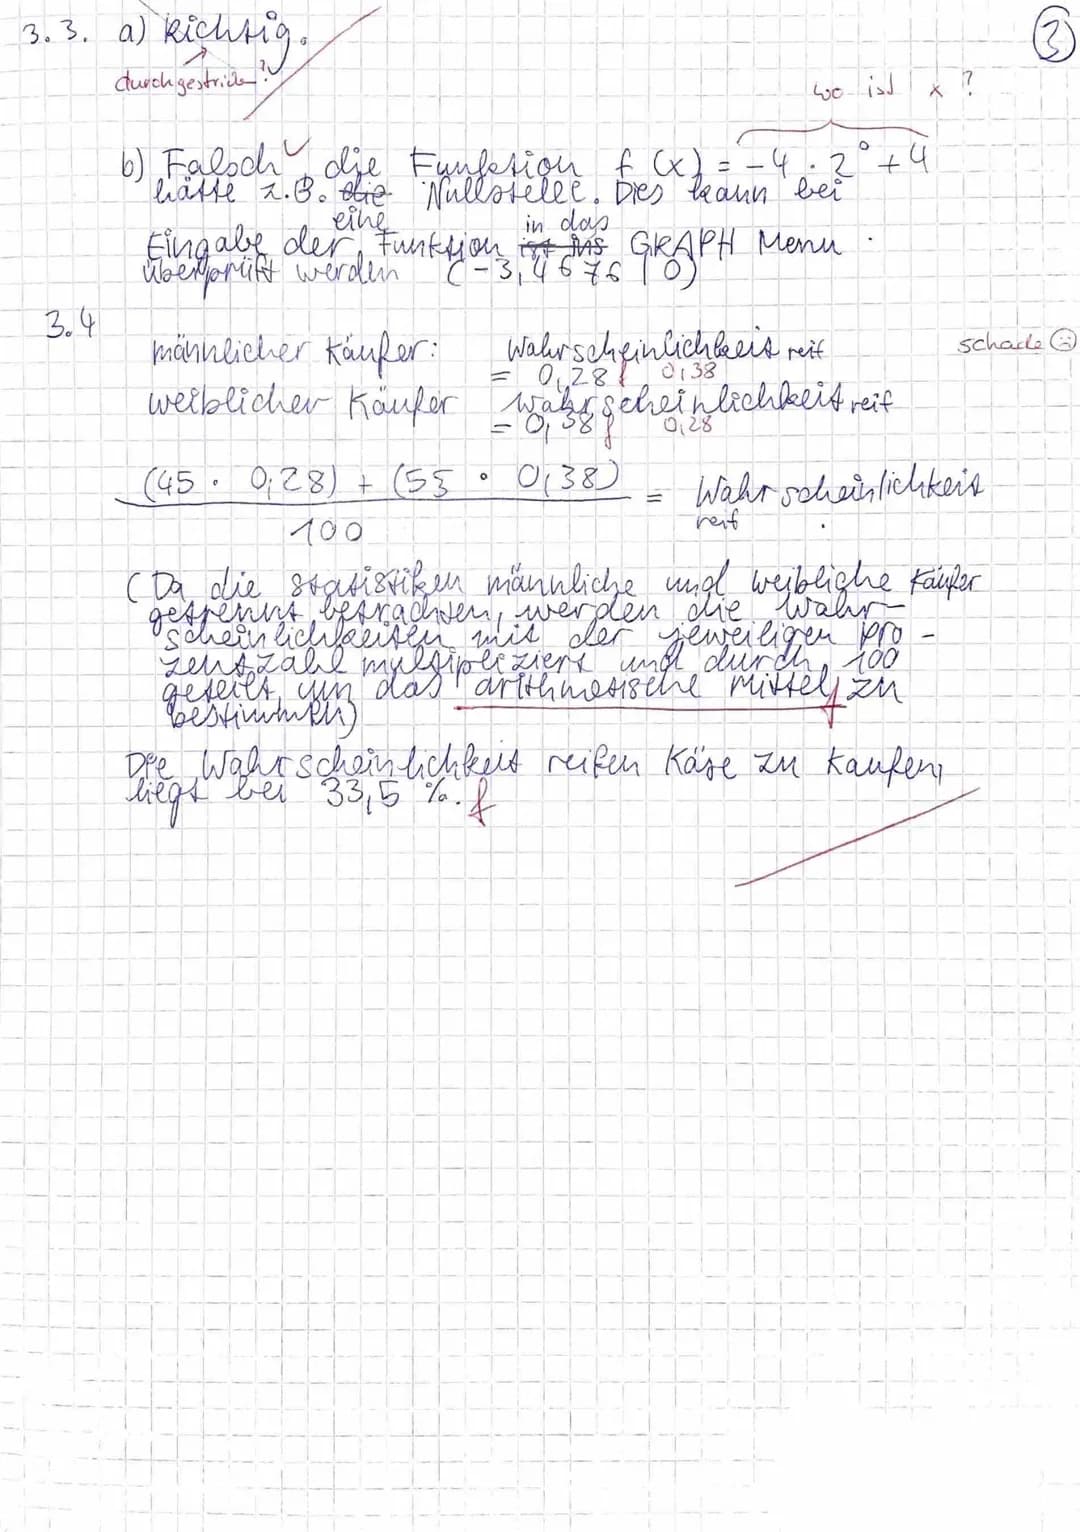 3.3. a) Richtig.
③
durchgestrichen?
wo ist x ?
b) Falsch ✓, die Funktion f(x) = -4 · 2⁰ + 4
hätte z.B. die Nullstelle. Dies kann bei
eine in das
Eingabe der Funktion ist ins GRAPH Menu.
überprüft werden (-3,4676 | 0)
3.4
männlicher Käufer: Wahrscheinlichkeit reif schade ☹
= 0,28 f 0,38
weiblicher Käufer Wahrscheinlichkeit reif
= 0,38 f 0,28
(45 · 0,28) + (55 · 0,38) = Wahrscheinlichkeit
100 reif
(Da die Statistiken männliche und weibliche Käufer
getrennt betrachten, werden die Wahr-
scheinlichkeiten mit der jeweiligen Pro-
zentzahl multipliziert und durch 100
geteilt, um das arithmetische Mittel f zu
bestimmen)
Die Wahrscheinlichkeit reifen Käse zu kaufen,
liegt bei 33,5 %. f